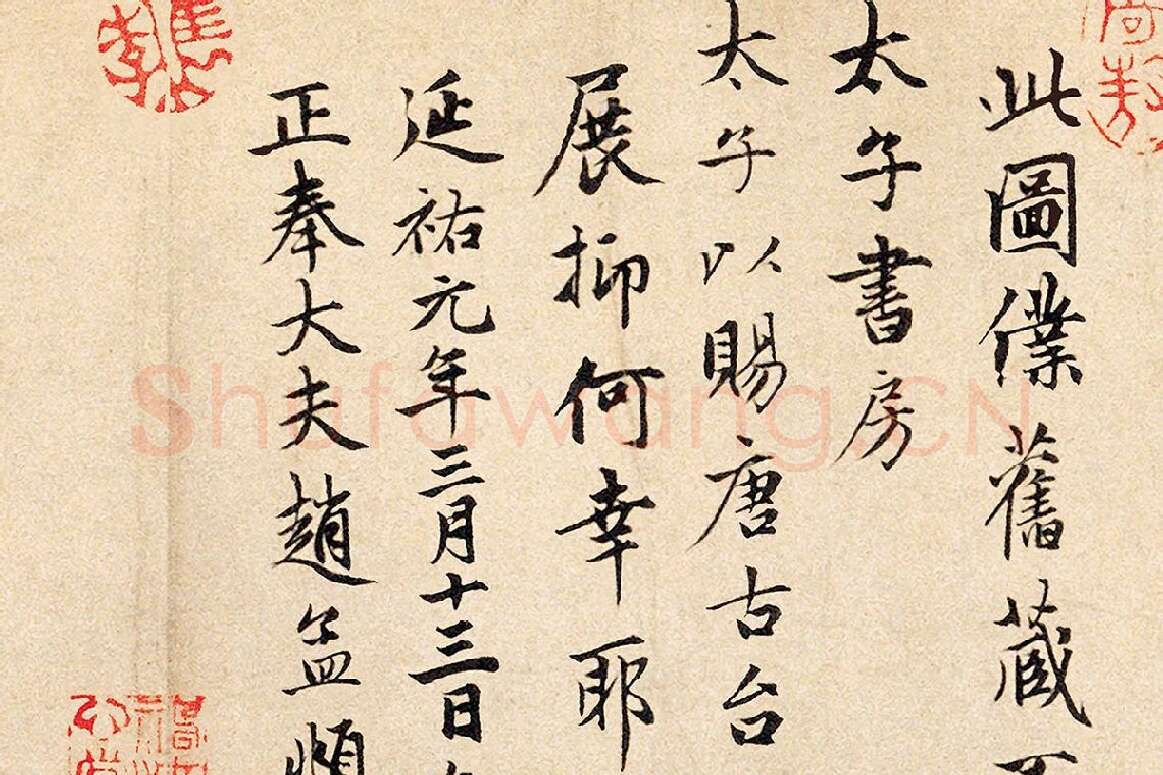 此圖僕舊藏
太子書房
太子以賜唐古台
展抑何幸耶
延祐元年三月十三日
正奉大夫趙孟頫
Shufawang.CN